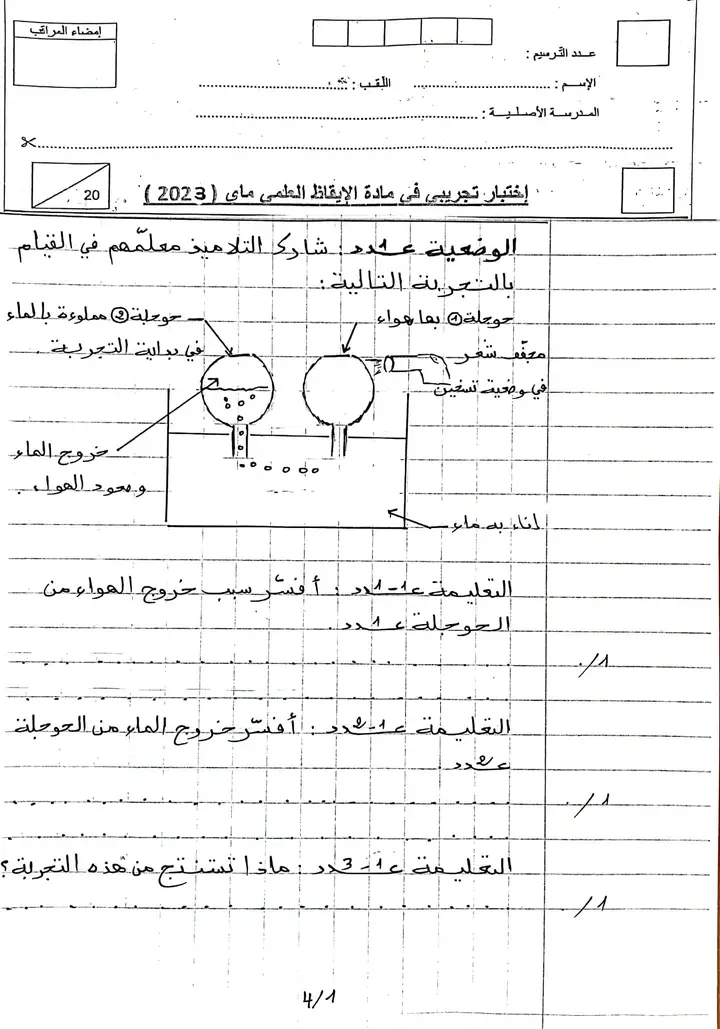 إمضاء المراقب
عدد الترسيم :
الإسم : ........................ اللقب : ........................
المدرسة الأصلية : ........................
20
إختبار تجريبي في مادة الإيقاظ العلمي ماي ( 2023 )
الوضعية عــ1ــدد : شارك التلاميذ معلّمهم في القيام
بالتجربة التالية :
حوجلة ① بها هواء
حوجلة ② مملوءة بالماء
في بداية التجربة .
مجفّف شعر
في وضعية تسخين
خروج الماء
وصعود الهواء .
إناء به ماء
التعليمة عــ1-1ــدد : أفسّر سبب خروج الهواء من
الحوجلة عــ1ــدد .
/1
التعليمة عــ1-2ــدد : أفسّر خروج الماء من الحوجلة
عــ2ــدد
/1
التعليمة عــ1-3ــدد : ماذا تستنتج من هذه التجربة ؟
/1
4/1